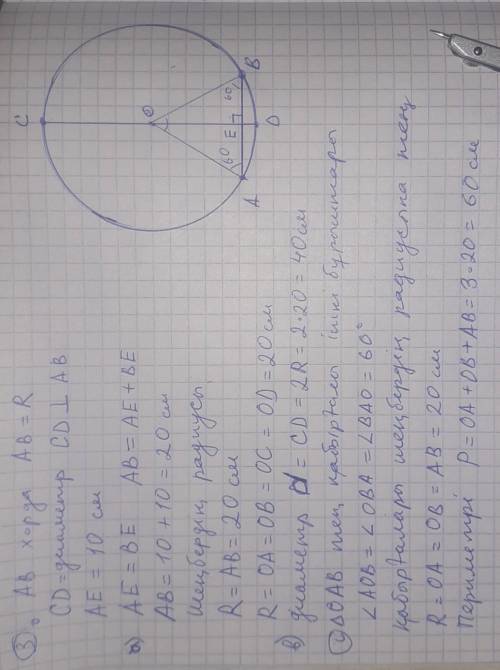 ③. AB хорда AB = R
CD = диаметр CD ⊥ AB
AE = 10 см
а) AE = BE AB = AE + BE
AB = 10 + 10 = 20 см
Шеңбердің радиусы
R = AB = 20 см
R = OA = OB = OC = OD = 20 см
в) диаметр d = CD = 2R = 2·20 = 40 см
с) △OAB тең қабырғалы ішкі бұрыштары
∠AOB = ∠OBA = ∠BAO = 60°
Қабырғалары шеңбердің радиусына тең
R = OA = OB = AB = 20 см
Периметрі P = OA + OB + AB = 3·20 = 60 см
C
O
E
60
60
A
B
D